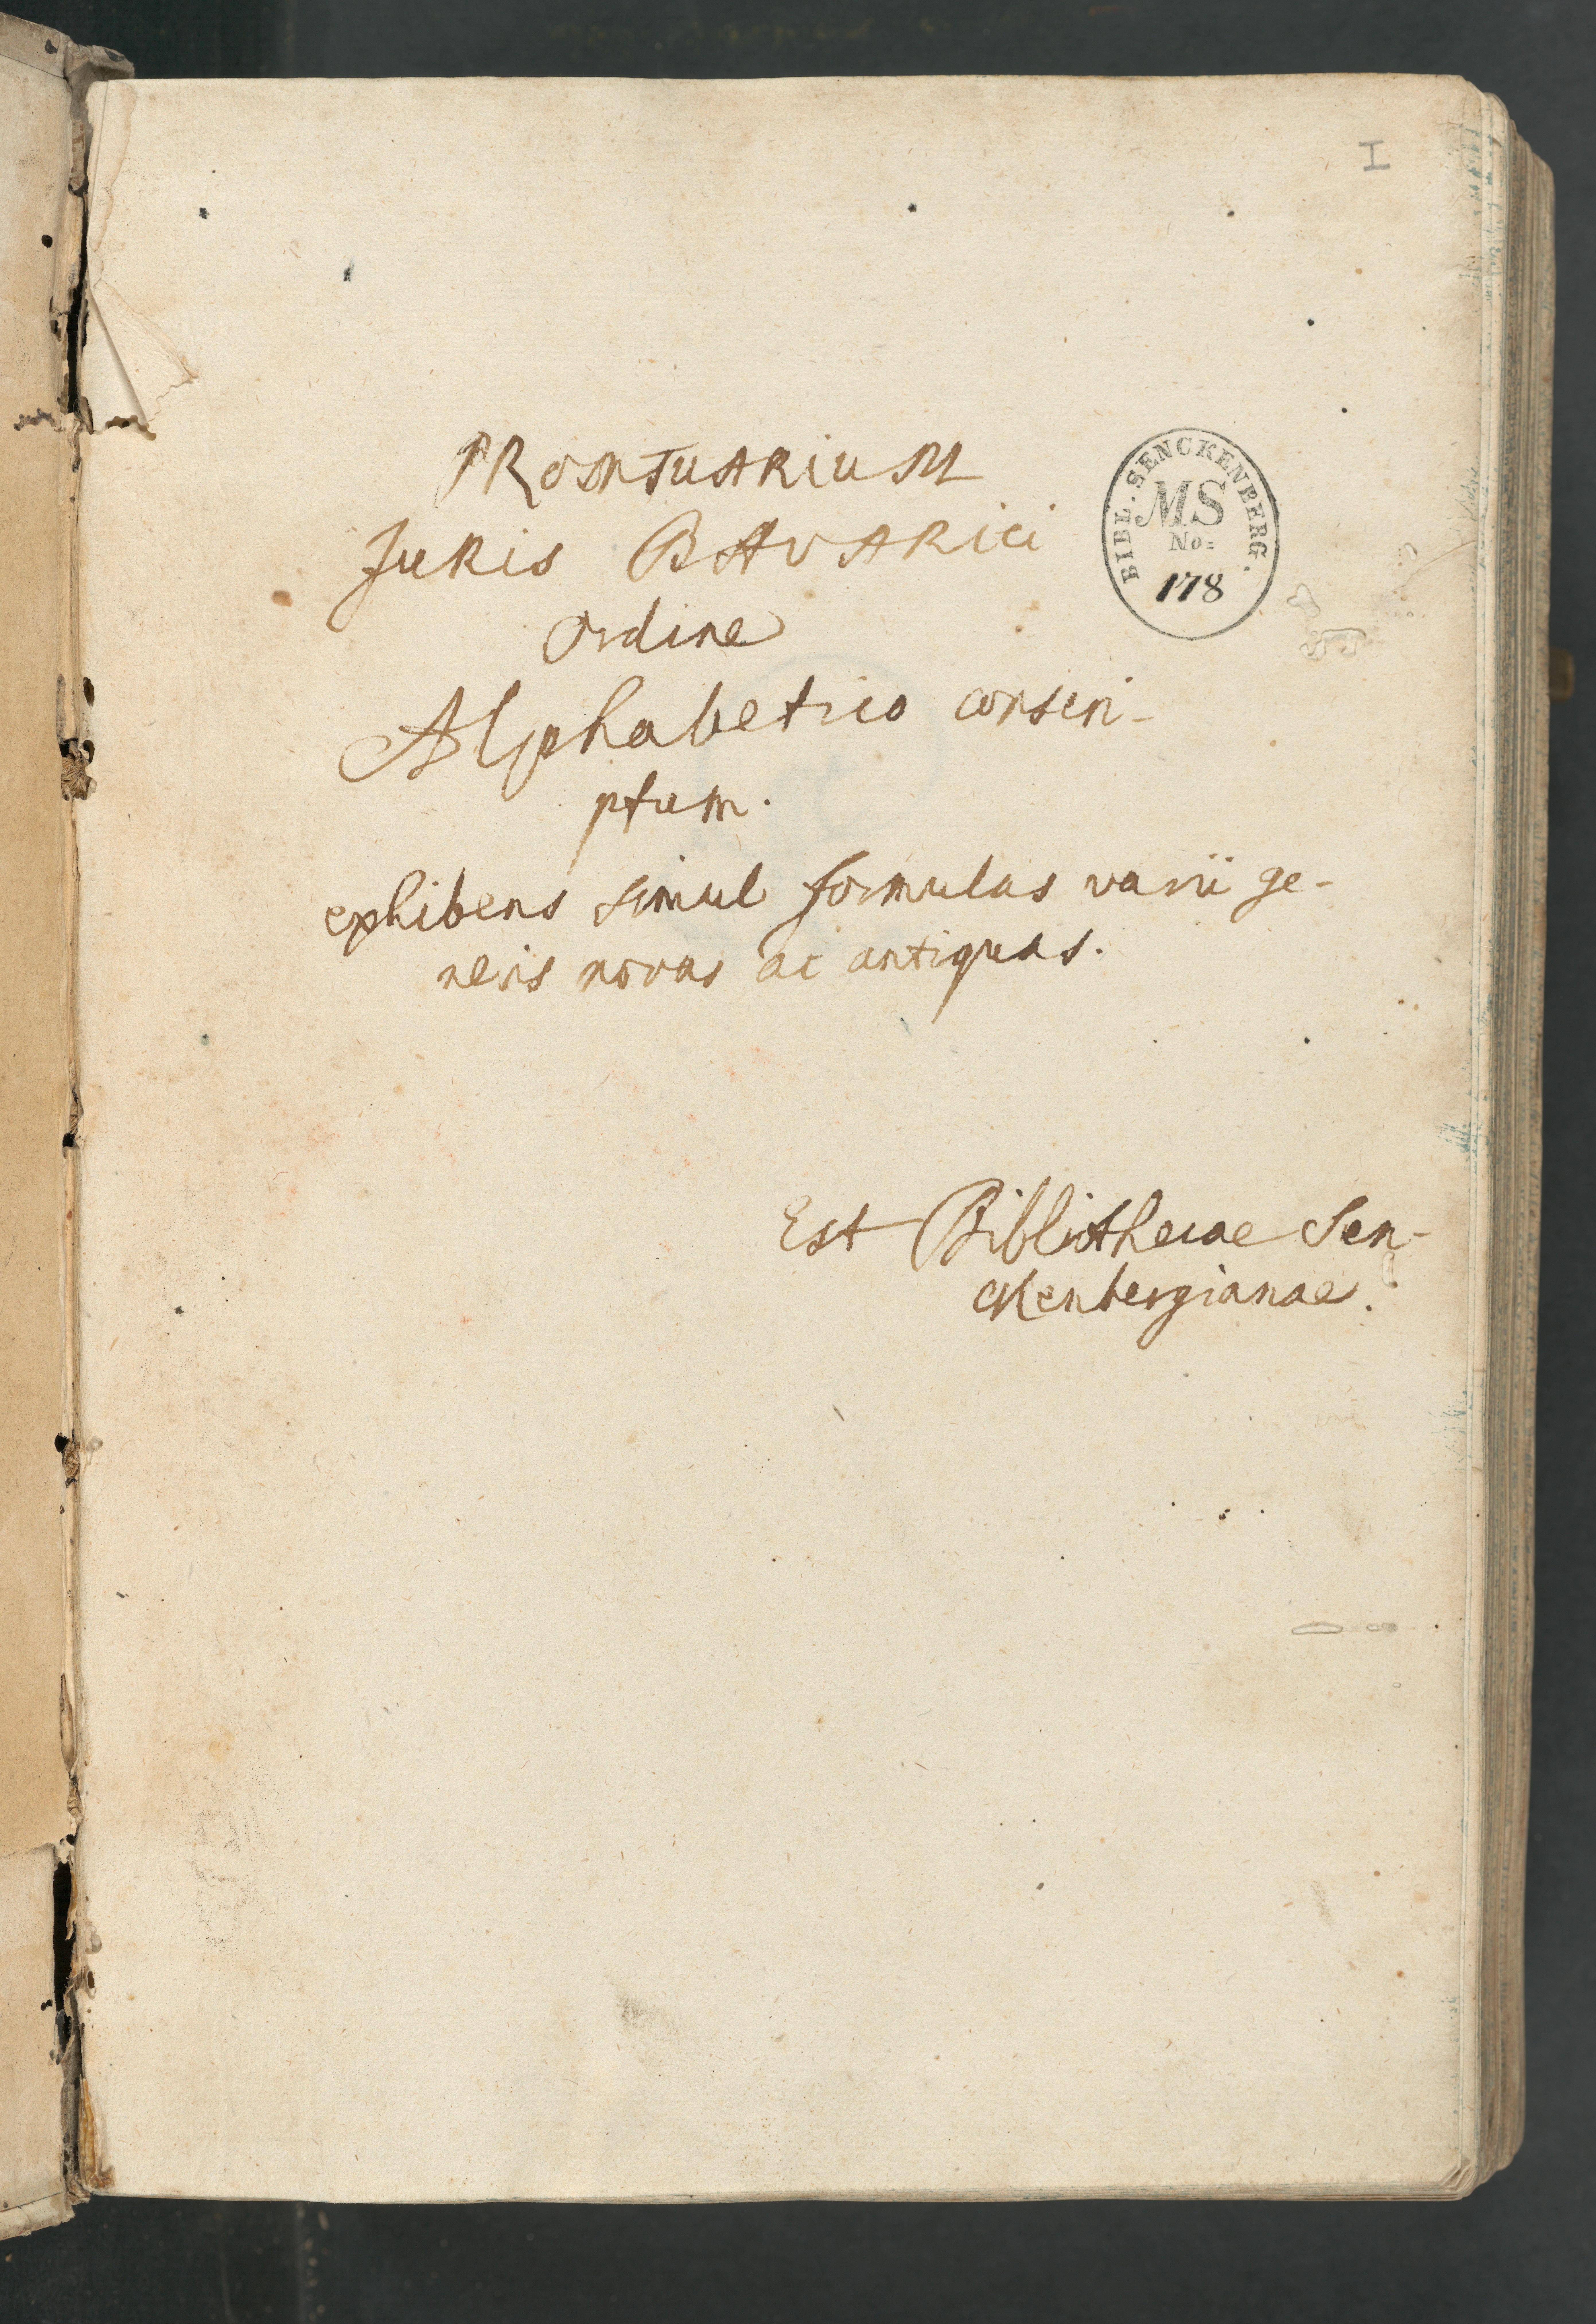 I
PRomTuARiuM
JuRis BAvARici
Ordine
Alphabetico conscri-
ptum.
exhibens simul formulas varii ge-
neris novas ac antiquas.
BIBL. SENCKENBERG.
MS
No:
178
Est Bibliothecae Sen-
ckenbergianae.